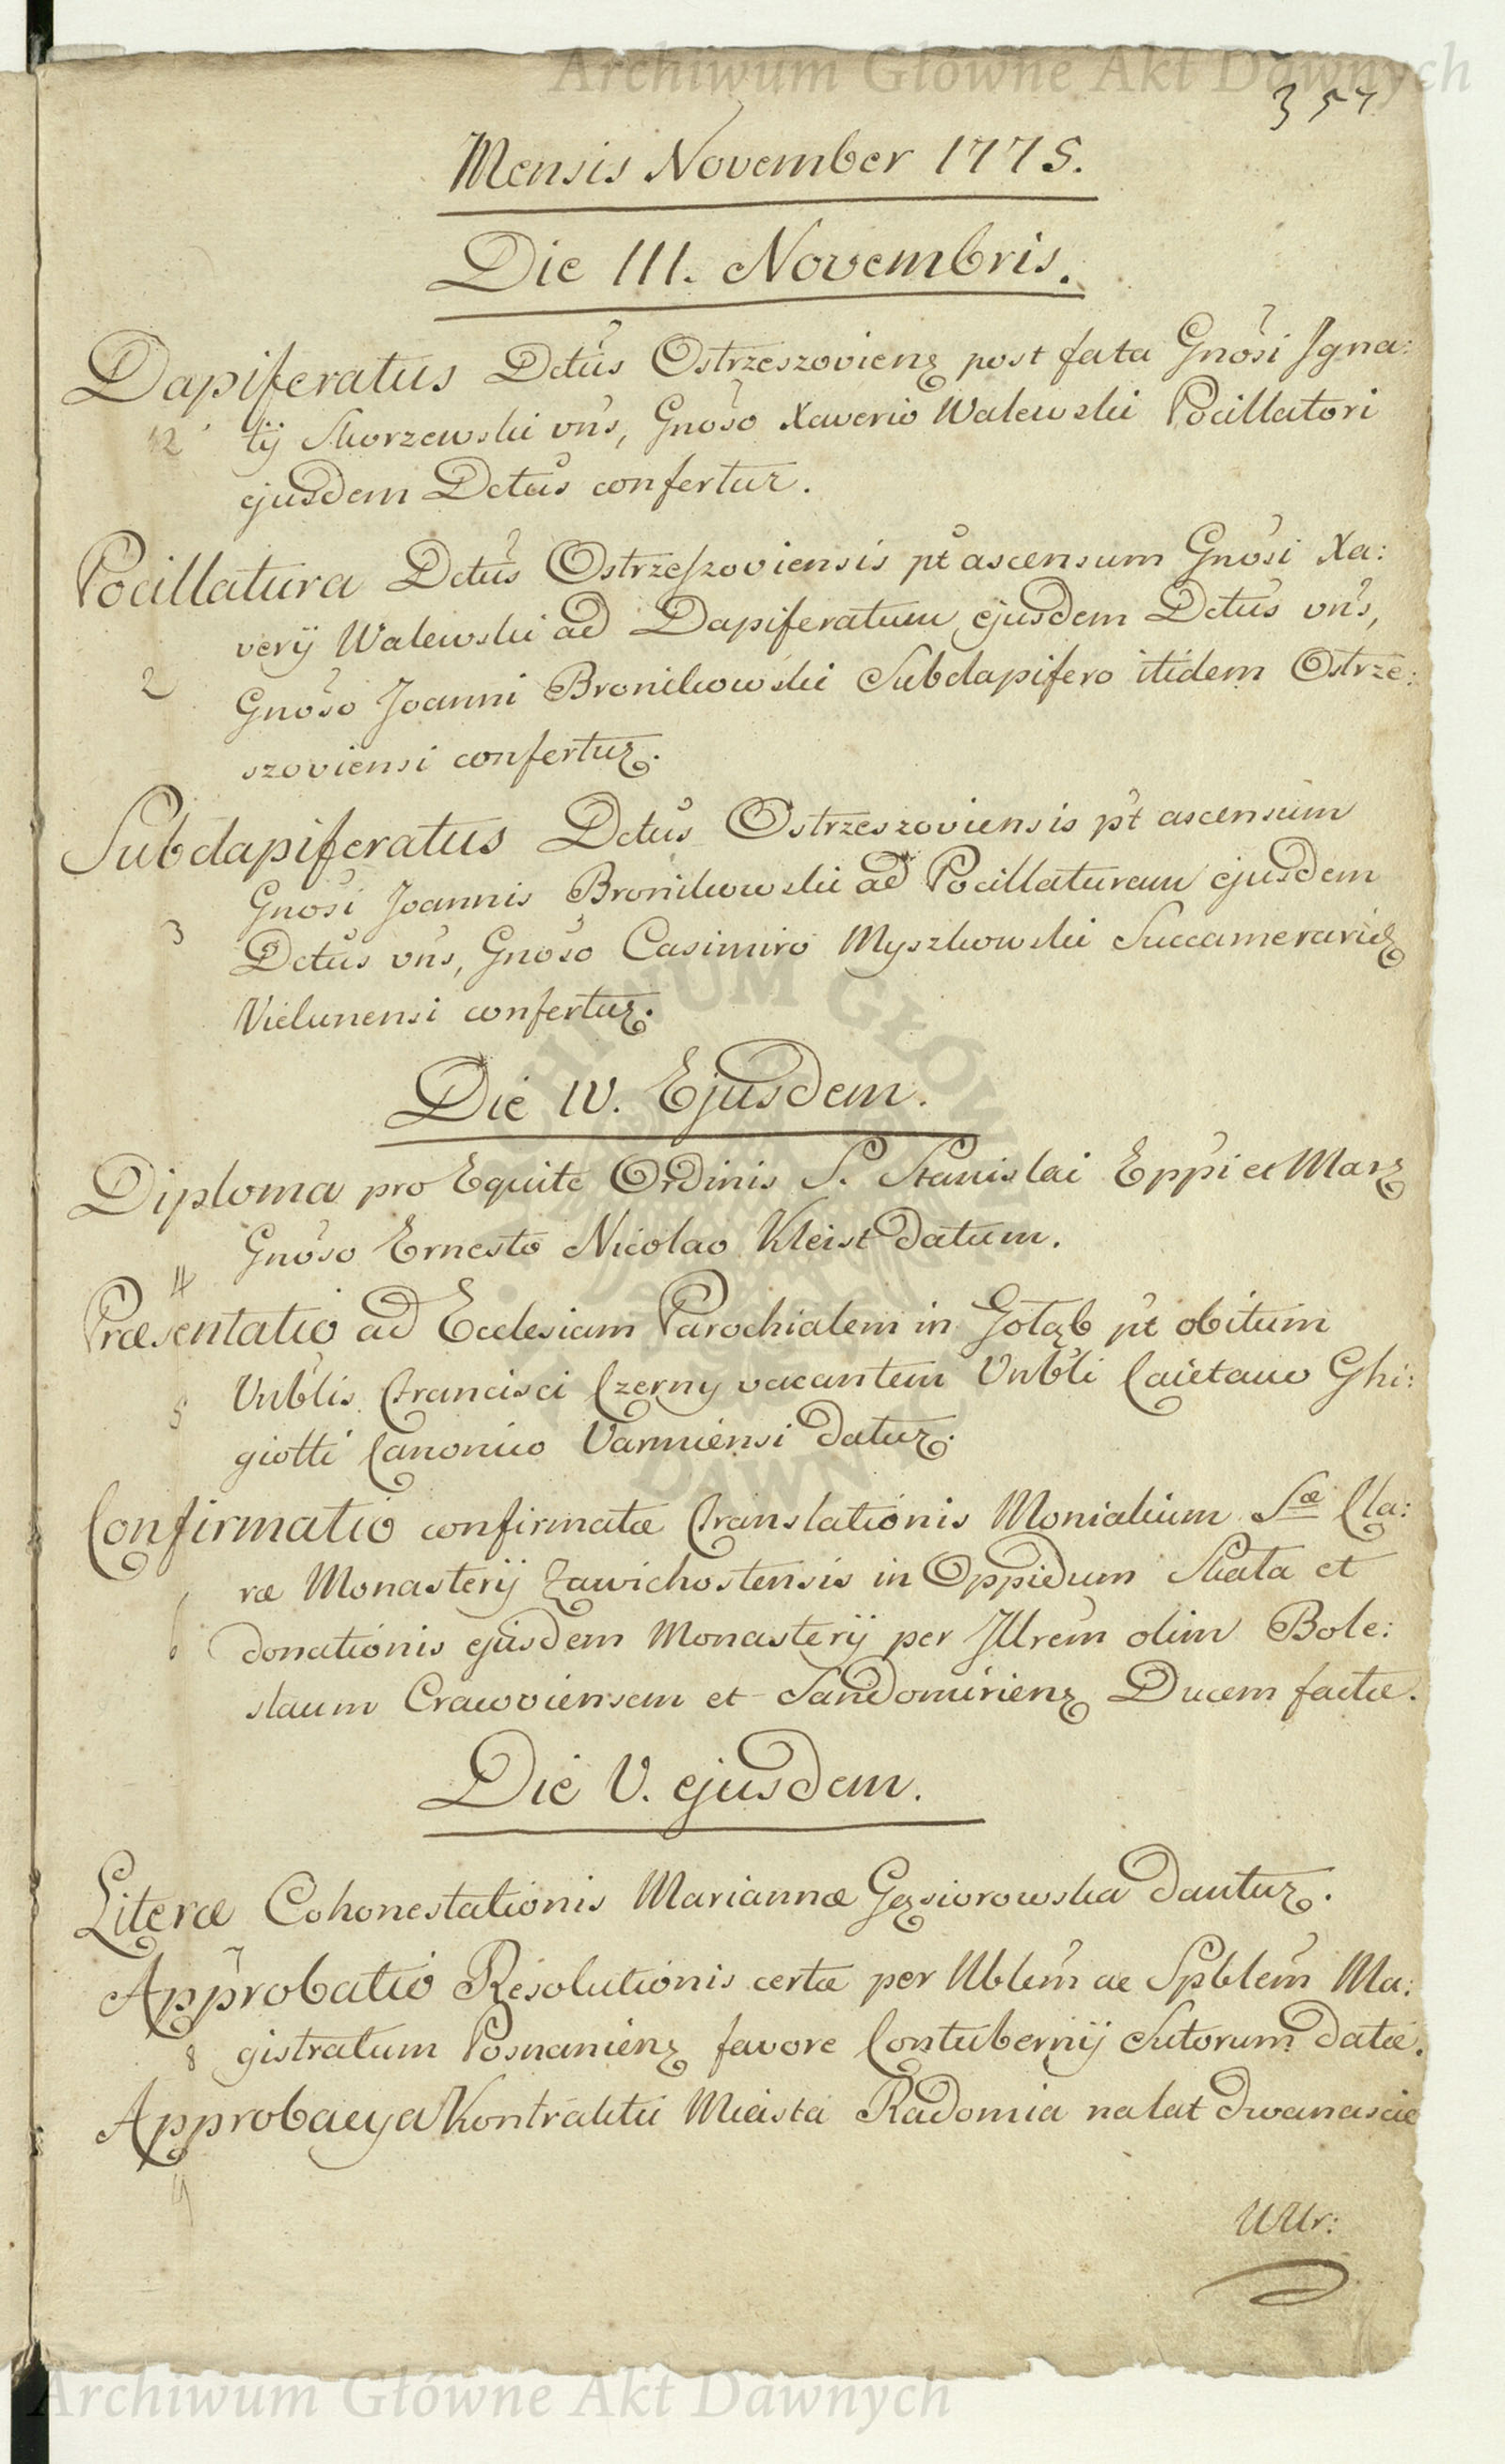 Archiwum Główne Akt Dawnych
357
Mensis November 1775.
Die III. Novembris.
Dapiferatus Dctûs Ostrzeszovienʒ post fata Gnosi Igna:
tij Skorzewski vn̄s, Gnoso Xaverio Walewski Pocillatori
12
ejusdem Dctûs confertur.
Pocillatura Dctûs Ostrzeszoviensis pt ascensum Gnosi Xa:
verij Walewski ad Dapiferatum ejusdem Dctûs vn̄s,
2
Gnoso Joanni Bronikowski Subdapifero itidem Ostrze:
szoviensi confertuʒ.
Subdapiferatus Dctûs Ostrzeszoviensis pt ascensum
Gnosi Joannis Bronikowski ad Pocillaturam ejusdem
3
Dctûs vn̄s, Gnoso Casimiro Myszkowski Succamerarid
Vielunensi confertuʒ.
Die IV. Ejusdem.
Diploma pro Equite Ordinis S. Stanislai Eppi et Marʒ
Gnoso Ernesto Nicolao Kleist datum.
4
Præsentatio ad Ecclesiam Parochialem in Gołąb pt obitum
5
Vnblis Francisci Czerny vacantem Vnbli Caietano Ghi:
giotti Canonico Varmiensi datuʒ.
Confirmatio confirmatæ Translationis Monialium Sæ Cla:
ræ Monasterij Zawichostensis in Oppidum Skała et
6
donationis ejusdem Monasterij per Illrem olim Bole:
slaum Cracoviensem et Sandomirienʒ Ducem factæ.
Die V. ejusdem.
Literæ Cohonestationis Mariannæ Gęsiorowska dantuʒ.
7
Approbatio Resolutionis certæ per Nblem ac Spblem Ma:
8
gistratum Posnanienʒ favore Contubernij Sutorum datæ.
Approbacya Kontraktu Miasta Radomia na lat dwanascie
9
UUr:
ARCHIWUM GŁÓWNE AKT DAWNYCH
Archiwum Główne Akt Dawnych